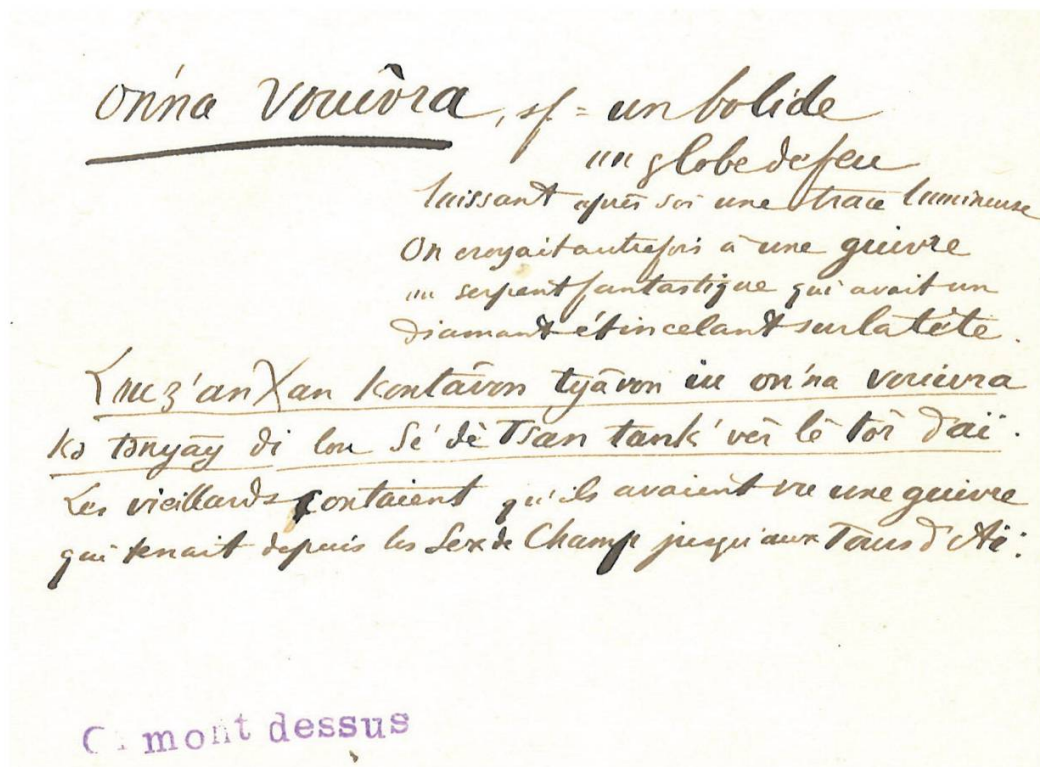 on'na vouivra, sf = un bolide
un globe de feu
laissant après soi une trace lumineuse
On croyait autrefois à une guivre
un serpent fantastique qui avait un
diamant étincelant sur la tête.
kontāvon tyāvon iu on'na vouivra
kə tənyāy di lou Sé dè Tsan tank' vēr lè Tòr d'aï.
Les vieillards contaient qu'ils avaient vu une guivre
qui tenait depuis les Sex de Champ jusqu'aux Tours d'Aï.
mont dessus